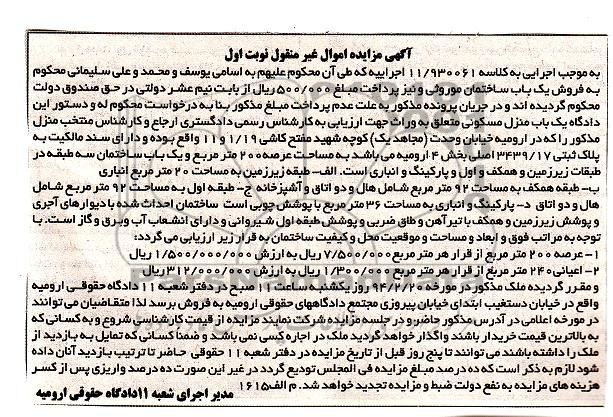 آگهی مزایده اموال غیر منقول نوبت اول
به موجب اجرایی به کلاسه ۱۱/۹۳۰۰۶۱ اجراییه که طی آن محکوم علیهم به اسامی یوسف و محمد و علی سلیمانی محکوم
به فروش یک باب ساختمان موروثی و نیز پرداخت مبلغ ۵۰۰/۰۰۰ ریال از بابت نیم عشر دولتی در حق صندوق دولت
محکوم گردیده اند و در جریان پرونده مذکور به علت عدم پرداخت مبلغ مذکور بنا به درخواست محکوم له و دستور این
دادگاه یک باب منزل مسکونی متعلق به وراث جهت ارزیابی به کارشناس رسمی دادگستری ارجاع و کارشناس منتخب منزل
مذکور را که در ارومیه خیابان وحدت (مجاهد یک) کوچه شهید مفتح کاشی ۱/۱۹ و ۱۱ واقع بوده و دارای سند مالکیت به
پلاک ثبتی ۳۴۳۹/۱۷ اصلی بخش ۴ ارومیه می باشد به مساحت عرصه ۲۰۰ متر مربع و یک باب ساختمان سه طبقه در
طبقات زیرزمین و همکف و اول و پارکینگ و انباری است. الف- طبقه زیرزمین به مساحت ۲۰ متر مربع انباری
ب- طبقه همکف به مساحت ۹۲ متر مربع شامل هال و دو اتاق و آشپزخانه ج- طبقه اول به مساحت ۹۲ متر مربع شامل
هال و دو اتاق د- پارکینگ و انباری به مساحت ۳۶ متر مربع با پوشش چوبی است ساختمان احداث شده با دیوارهای آجری
و پوشش زیرزمین و همکف با تیرآهن و طاق ضربی و پوشش طبقه اول شیروانی و دارای انشعاب آب و برق و گاز است. با
توجه به مراتب فوق و ابعاد و مساحت و موقعیت محل و کیفیت ساختمان به قرار زیر ارزیابی می گردد:
۱- عرصه ۲۰۰ متر مربع از قرار هر متر مربع ۷/۵۰۰/۰۰۰ ریال به ارزش ۱/۵۰۰/۰۰۰/۰۰۰ ریال
۲- اعیانی ۲۴۰ متر مربع از قرار هر متر مربع ۱/۳۰۰/۰۰۰ ریال به ارزش ۳۱۲/۰۰۰/۰۰۰ ریال
و مقرر گردیده ملک مذکور در مورخه ۹۴/۲/۲۰ روز یکشنبه ساعت ۱۱ صبح در دفتر شعبه ۱۱ دادگاه حقوقی ارومیه
واقع در خیابان دستغیب ابتدای خیابان پیروزی مجتمع دادگاههای حقوقی ارومیه به فروش برسد لذا متقاضیان می توانند
در مورخه اعلامی در آدرس مذکور حاضر و در جلسه مزایده شرکت نمایند مزایده از قیمت کارشناسی شروع و به کسانی که
به بالاترین قیمت خریدار باشند واگذار خواهد گردید ملک در اجاره کسی نمی باشد و ضمنا کسانی که تمایل به بازدید از
ملک را داشته باشند می توانند تا پنج روز قبل از تاریخ مزایده در دفتر شعبه ۱۱ حقوقی حاضر تا ترتیب بازدید آنان داده
شود لازم به ذکر است که ده درصد مبلغ مزایده فی المجلس تودیع گردد در غیر این صورت ده درصد واریزی پس از کسر
هزینه های مزایده به نفع دولت ضبط و مزایده تجدید خواهد شد. م الف ۱۶۱۵
مدیر اجرای شعبه ۱۱ دادگاه حقوقی ارومیه